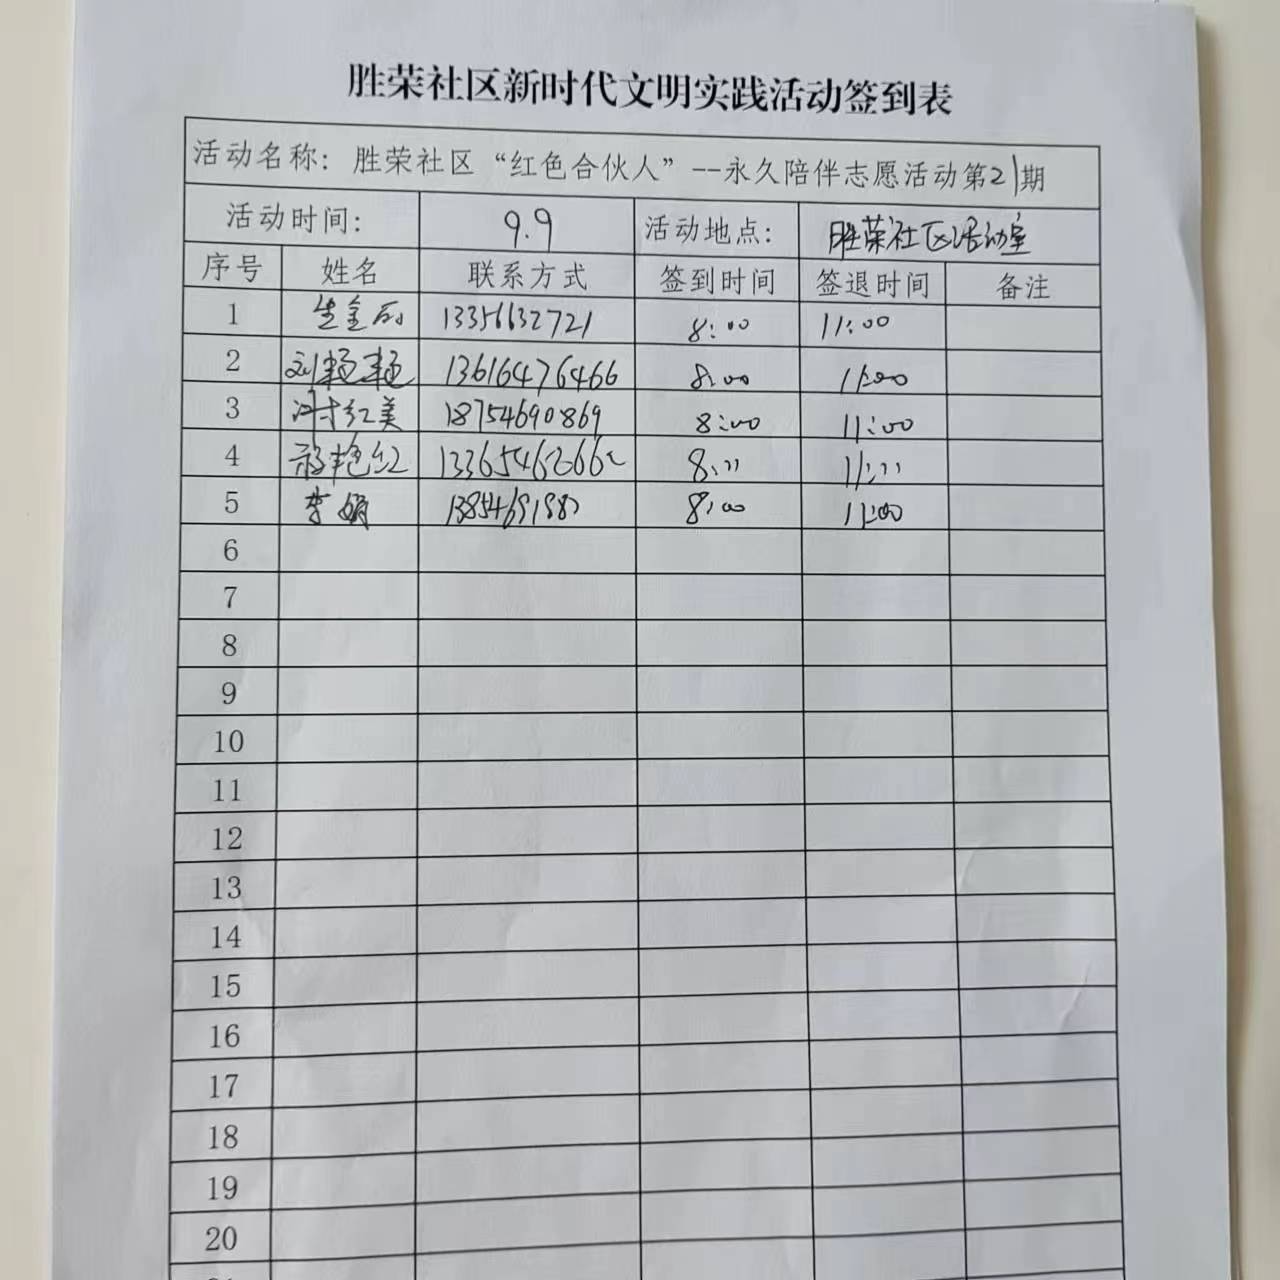 胜荣社区新时代文明实践活动签到表
活动名称：胜荣社区“红色合伙人”--永久陪伴志愿活动第21期
活动时间： 9.9 活动地点： 胜荣社区活动室
序号 姓名 联系方式 签到时间 签退时间 备注
1 13356632721 8:00 11:00
2 刘艳艳 13616476466 8:00 11:00
3 红美 18754690869 8:00 11:00
4 艳红 8:11 11:11
5 李娟 8:00 11:00
6
7
8
9
10
11
12
13
14
15
16
17
18
19
20